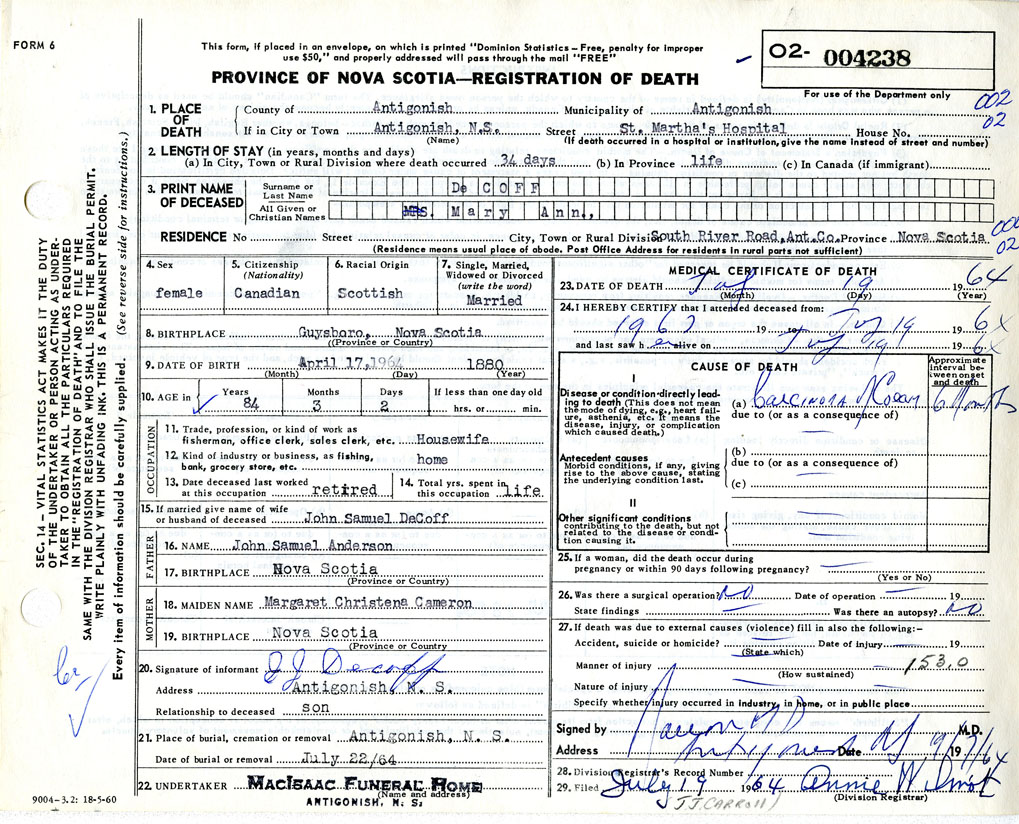 FORM 6
This form, if placed in an envelope, on which is printed "Dominion Statistics – Free, penalty for improper
use $50," and properly addressed will pass through the mail "FREE"
PROVINCE OF NOVA SCOTIA—REGISTRATION OF DEATH
02- 004238
For use of the Department only
002
02
1. PLACE OF DEATH
County of Antigonish Municipality of Antigonish
If in City or Town Antigonish, N.S. Street St. Martha's Hospital House No.
(Name) (If death occurred in a hospital or institution, give the name instead of street and number)
2. LENGTH OF STAY (in years, months and days)
(a) In City, Town or Rural Division where death occurred 34 days (b) In Province life (c) In Canada (if immigrant)
3. PRINT NAME OF DECEASED
Surname or Last Name De COFF
All Given or Christian Names MRS. Mary Ann.,
RESIDENCE No Street City, Town or Rural Division South River Road, Ant.Co. Province Nova Scotia
02
(Residence means usual place of abode. Post Office Address for residents in rural parts not sufficient)
4. Sex
female
5. Citizenship
(Nationality)
Canadian
6. Racial Origin
Scottish
7. Single, Married,
Widowed or Divorced
(write the word)
Married
8. BIRTHPLACE Guysboro, Nova Scotia
(Province or Country)
9. DATE OF BIRTH April 17,1964 1880
(Month) (Day) (Year)
10. AGE in
Years 84
Months 3
Days 2
If less than one day old
hrs. or min.
OCCUPATION
11. Trade, profession, or kind of work as
fisherman, office clerk, sales clerk, etc. Housewife
12. Kind of industry or business, as fishing,
bank, grocery store, etc. home
13. Date deceased last worked
at this occupation retired
14. Total yrs. spent in
this occupation life
15. If married give name of wife
or husband of deceased John Samuel DeCoff
FATHER
16. NAME John Samuel Anderson
17. BIRTHPLACE Nova Scotia
(Province or Country)
MOTHER
18. MAIDEN NAME Margaret Christena Cameron
19. BIRTHPLACE Nova Scotia
(Province or Country)
20. Signature of informant JJ Decoff
Address Antigonish N. S.
Relationship to deceased son
21. Place of burial, cremation or removal Antigonish, N. S.
Date of burial or removal July 22/64
22. UNDERTAKER MACISAAC FUNERAL HOME
(Name and address)
ANTIGONISH, N. S.
9004–3.2: 18-5-60
MEDICAL CERTIFICATE OF DEATH
23. DATE OF DEATH July 19 1964
(Month) (Day) (Year)
24. I HEREBY CERTIFY that I attended deceased from:
19 to July 19 19 64
and last saw her alive on July 19 19 64
CAUSE OF DEATH
Approximate
interval be-
tween onset
and death
I
Disease or condition directly lead-
ing to death (This does not mean
the mode of dying, e.g., heart fail-
ure, asthenia, etc. It means the
disease, injury, or complication
which caused death.)
(a) Carcinoma of Colon 6 Months
due to (or as a consequence of)
Antecedent causes
Morbid conditions, if any, giving
rise to the above cause, stating
the underlying condition last.
(b)
due to (or as a consequence of)
(c)
II
Other significant conditions
contributing to the death, but not
related to the disease or condi-
tion causing it.
25. If a woman, did the death occur during
pregnancy or within 90 days following pregnancy?
(Yes or No)
26. Was there a surgical operation? NO Date of operation 19
State findings Was there an autopsy? NO
27. If death was due to external causes (violence) fill in also the following:–
Accident, suicide or homicide? Date of injury 19
(State which)
Manner of injury 153.0
(How sustained)
Nature of injury
Specify whether injury occurred in industry, in home, or in public place
Signed by M.D.
Address Antigonish Date 19/7/64
28. Division Registrar's Record Number
29. Filed July 19 1964 Annie
(Division Registrar)
(J.J. CARROLL)
SEC. 14 – VITAL STATISTICS ACT MAKES IT THE DUTY
OF THE UNDERTAKER OR PERSON ACTING AS UNDER-
TAKER TO OBTAIN ALL THE PARTICULARS REQUIRED
IN THE "REGISTRATION OF DEATH" AND TO FILE THE
SAME WITH THE DIVISION REGISTRAR WHO SHALL ISSUE THE BURIAL PERMIT.
WRITE PLAINLY WITH UNFADING INK. THIS IS A PERMANENT RECORD.
Every item of information should be carefully supplied. (See reverse side for instructions.)